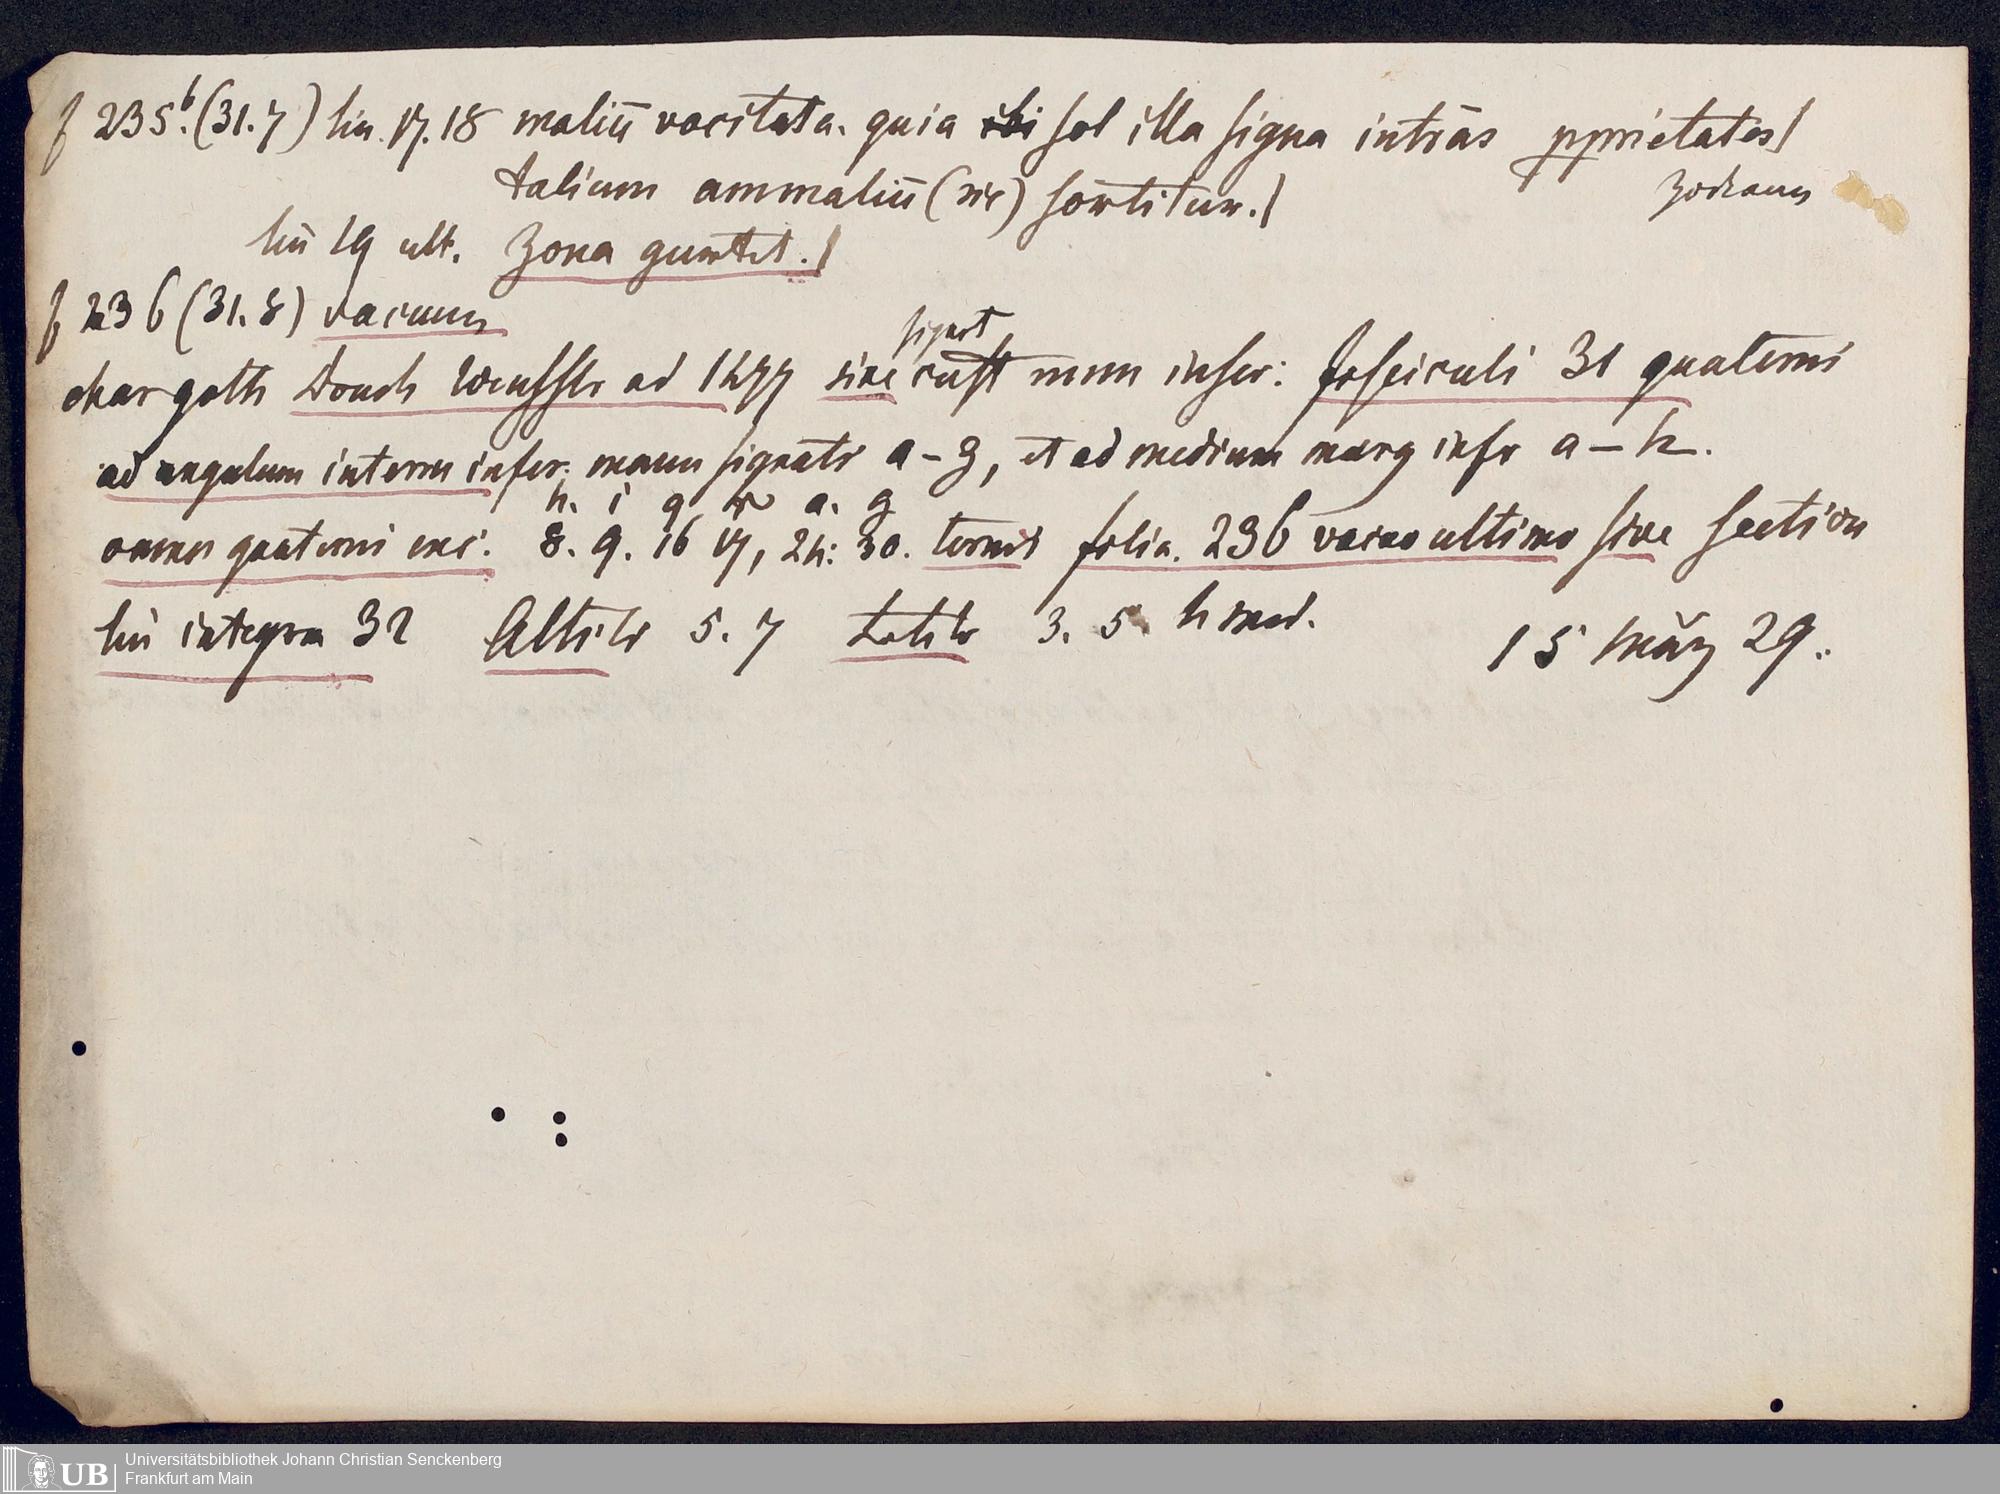 f 235b. (31.7) lin. 17. 18 maliū vocitata. quia ibi sol illa signa intrās pprietates/
talium ammaliū (sic) sortitur./ Zodiacus
lin 19 ult. Zona quartet./
f 236 (31.8) vacuum
signat
char goth Donch ad 1477 sine cust num infer: fasciculi 31 quaterni
ad angulum internu infer. manu signati a – z, et ad medium marg infr a – h.
h. i q r a. g
omnes quaterni exc. 8. 9. 16 17, 24: 30. ternis folia. 236 vacuo ultimo sive section
lin integra 32 Altit 5. 7 Latit 3. 5 h med.
15 März 29.
Universitätsbibliothek Johann Christian Senckenberg
Frankfurt am Main
UB